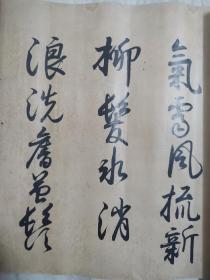 氣霽風梳新
柳髮氷消
浪洗舊苔鬚